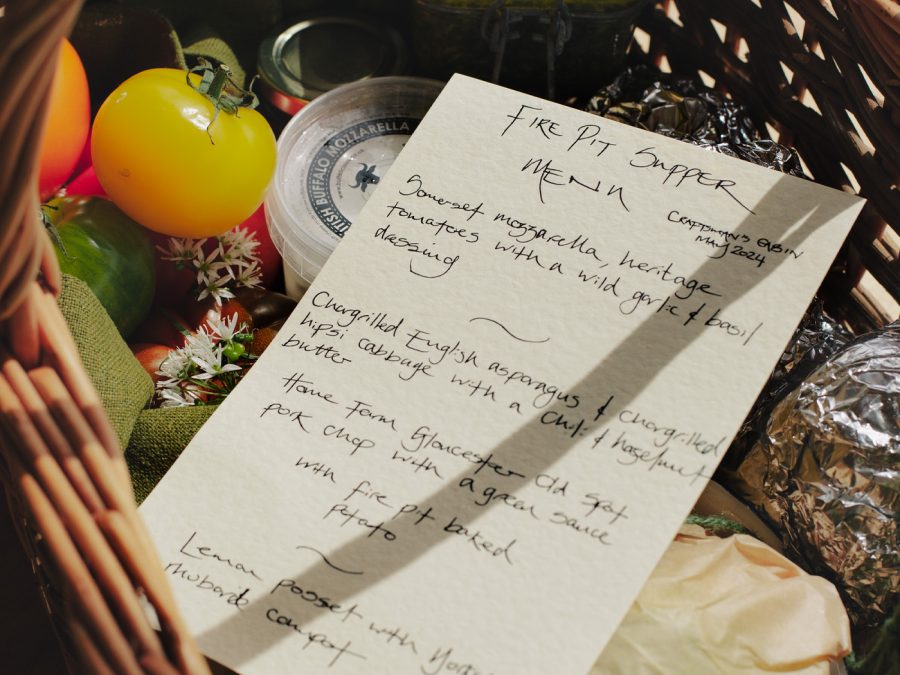 FIRE PIT SUPPER
MENU
CRAFTSMAN'S CABIN
MAY 2024
Somerset mozzarella, heritage
tomatoes with a wild garlic & basil
dressing
Chargrilled English asparagus & chargrilled
hipsi cabbage with a chilli & hazelnut
butter
Home Farm Gloucester Old Spot
pork chop with a green sauce
with fire pit baked
potato
Lemon posset with
rhubarb compot
BUFFALO MOZZARELLA